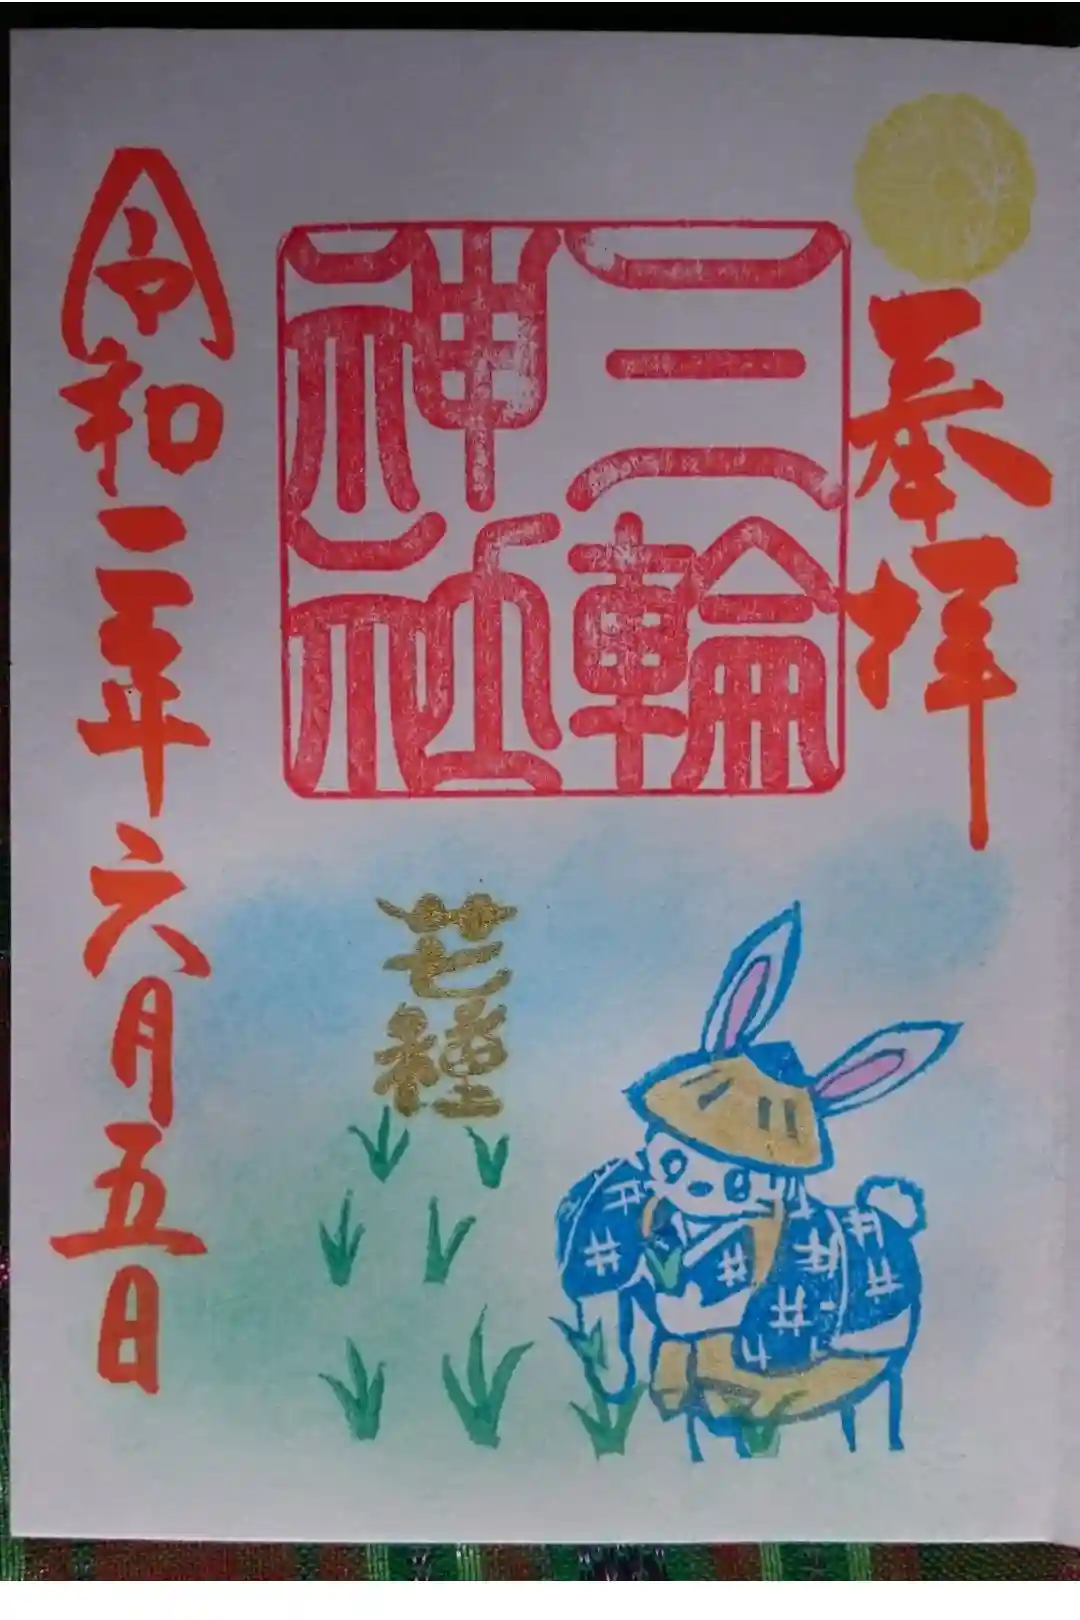 奉拝
三輪
神社
芒種
令和二年六月五日